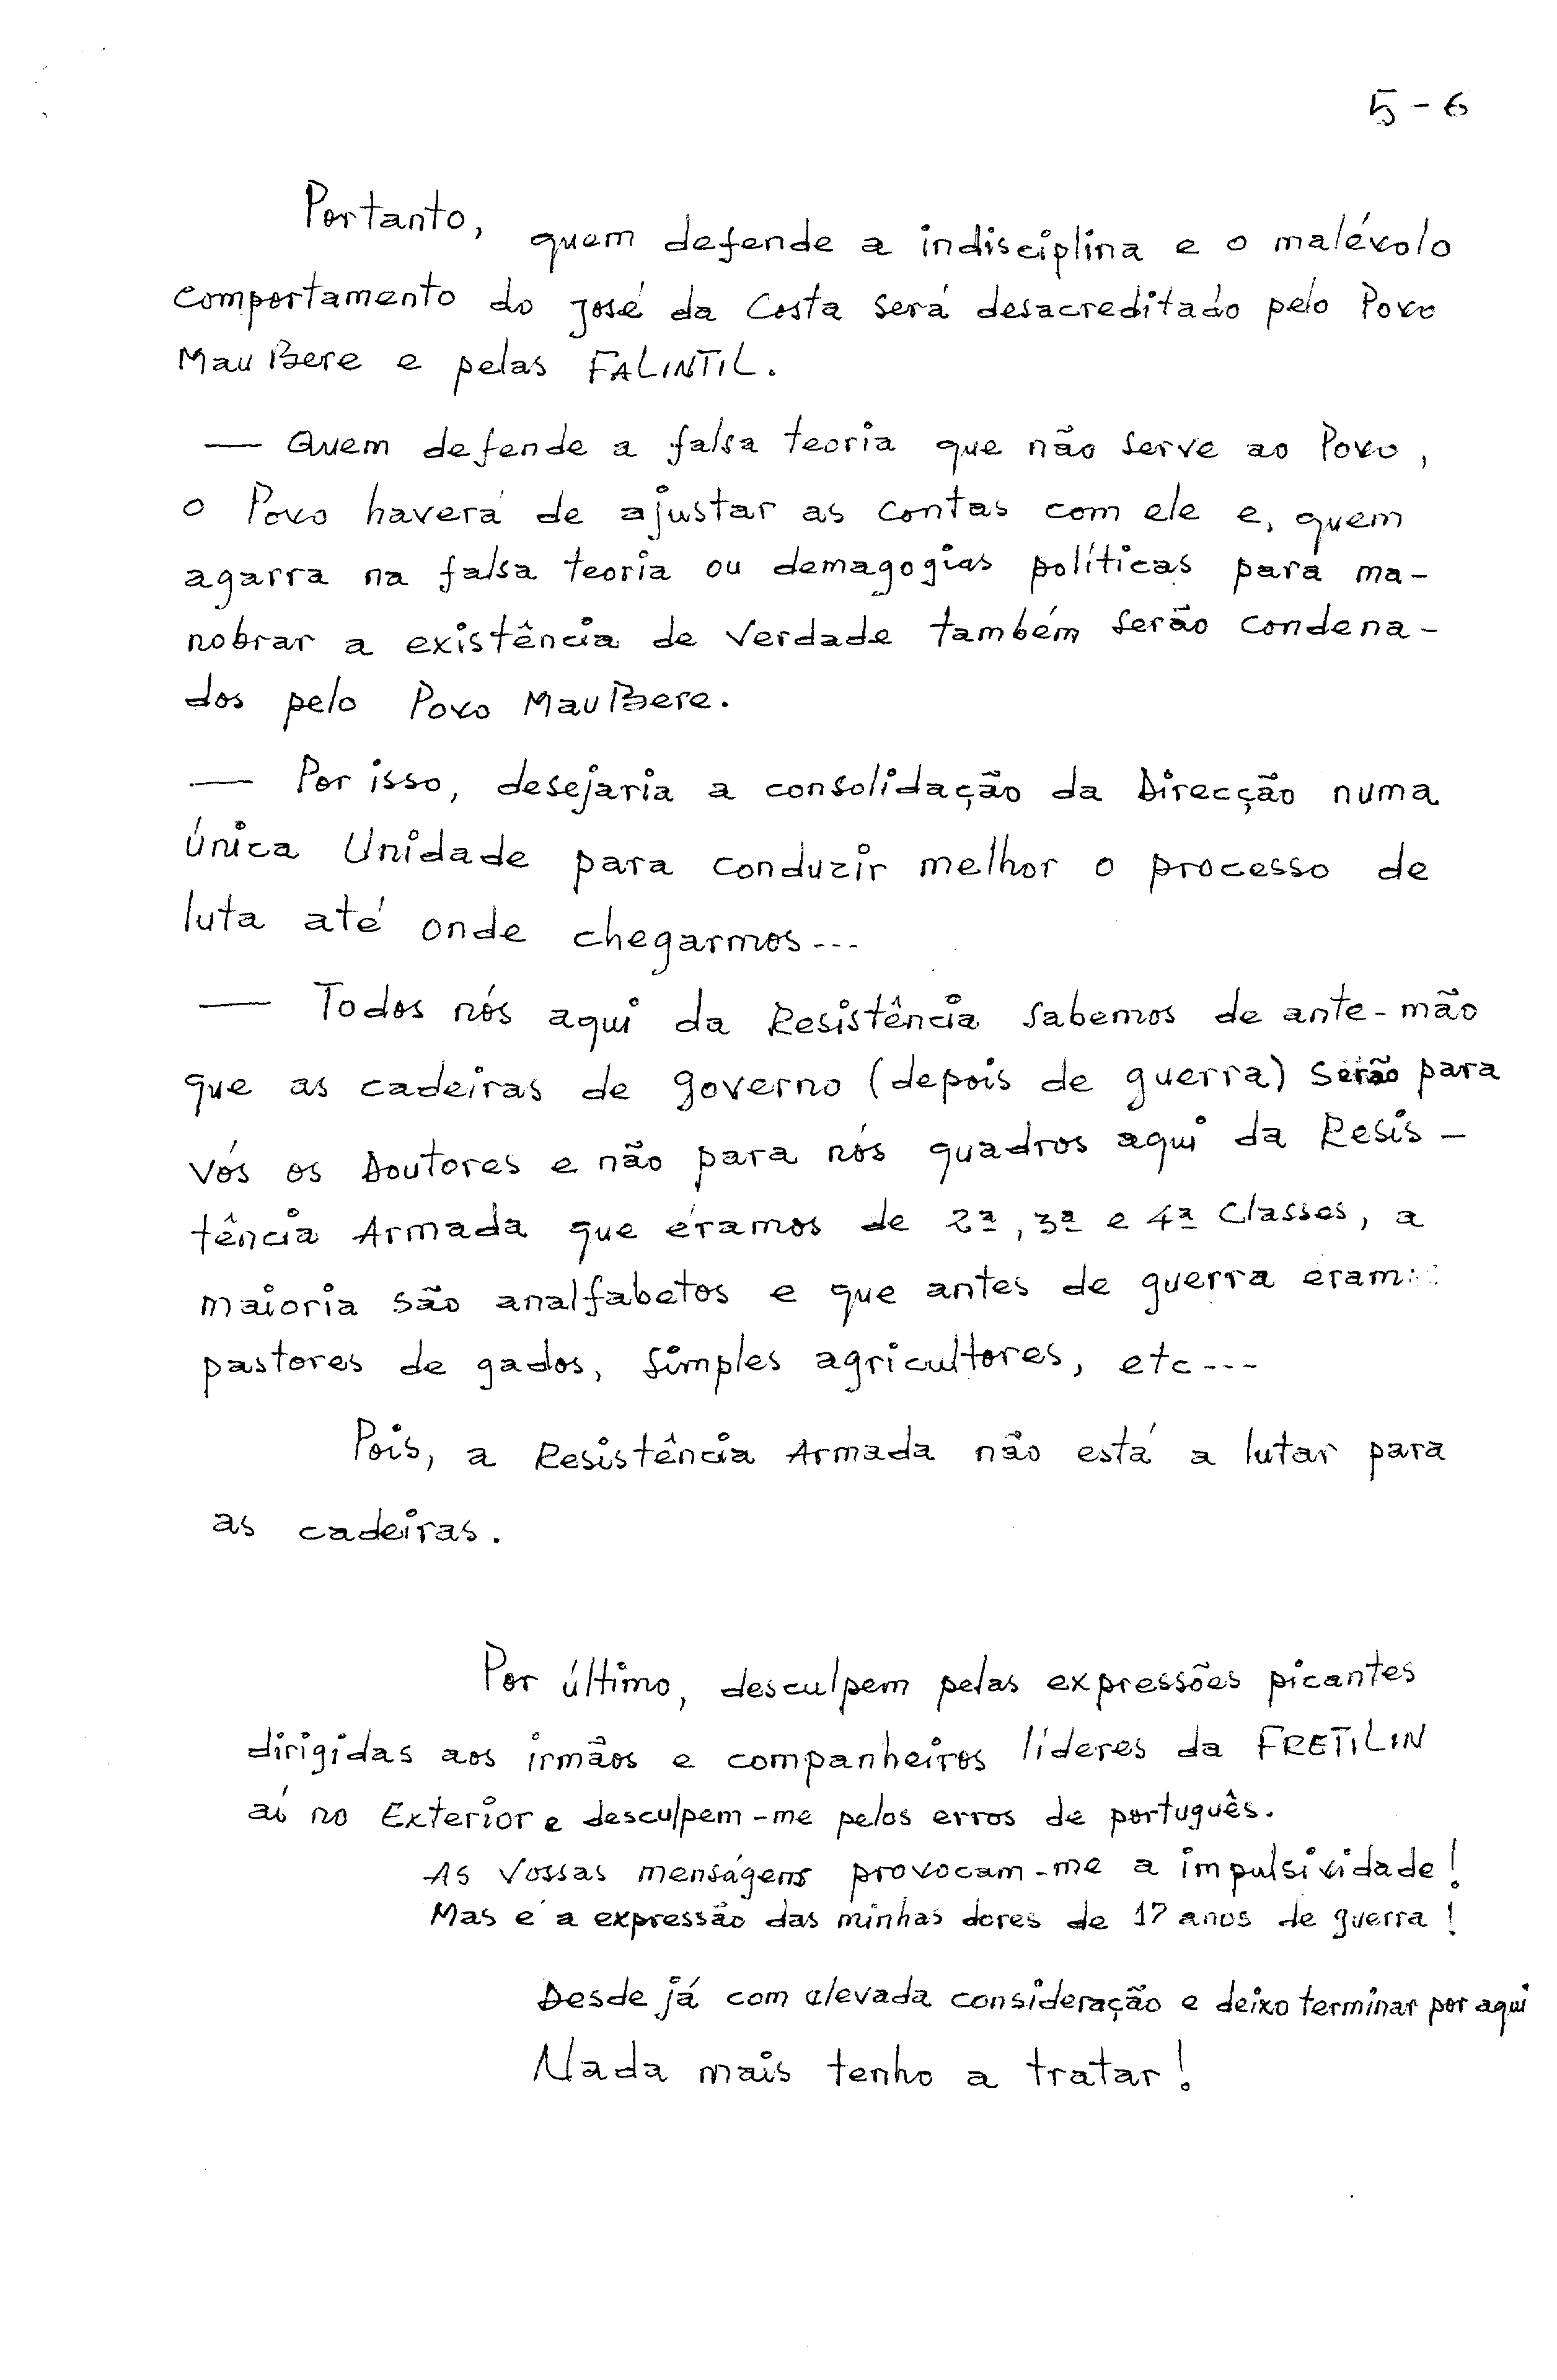 5-6
Portanto, quem defende a indisciplina e o malévolo
comportamento do José da Costa será desacreditado pelo Povo
MauBere e pelas FALINTIL.
— Quem defende a falsa teoria que não serve ao Povo,
o Povo haverá de ajustar as contas com ele e, quem
agarra na falsa teoria ou demagogias políticas para ma-
nobrar a existência de verdade também serão condena-
dos pelo Povo MauBere.
— Por isso, desejaria a consolidação da Direcção numa
única Unidade para conduzir melhor o processo de
luta até onde chegarmos---
— Todos nós aqui da Resistência sabemos de ante-mão
que as cadeiras de governo (depois de guerra) serão para
vós os Doutores e não para nós quadros aqui da Resis-
tência Armada que éramos de 2ª, 3ª e 4ª Classes, a
maioria são analfabetos e que antes de guerra eram
pastores de gados, simples agricultores, etc---
Pois, a Resistência Armada não está a lutar para
as cadeiras.
Por último, desculpem pelas expressões picantes
dirigidas aos irmãos e companheiros líderes da FRETILIN
aí no Exterior e desculpem-me pelos erros de português.
As Vossas menságens provocam-me a impulsividade!
Mas é a expressão das minhas dores de 17 anos de guerra!
Desde já com elevada consideração e deixo terminar por aqui
Nada mais tenho a tratar!